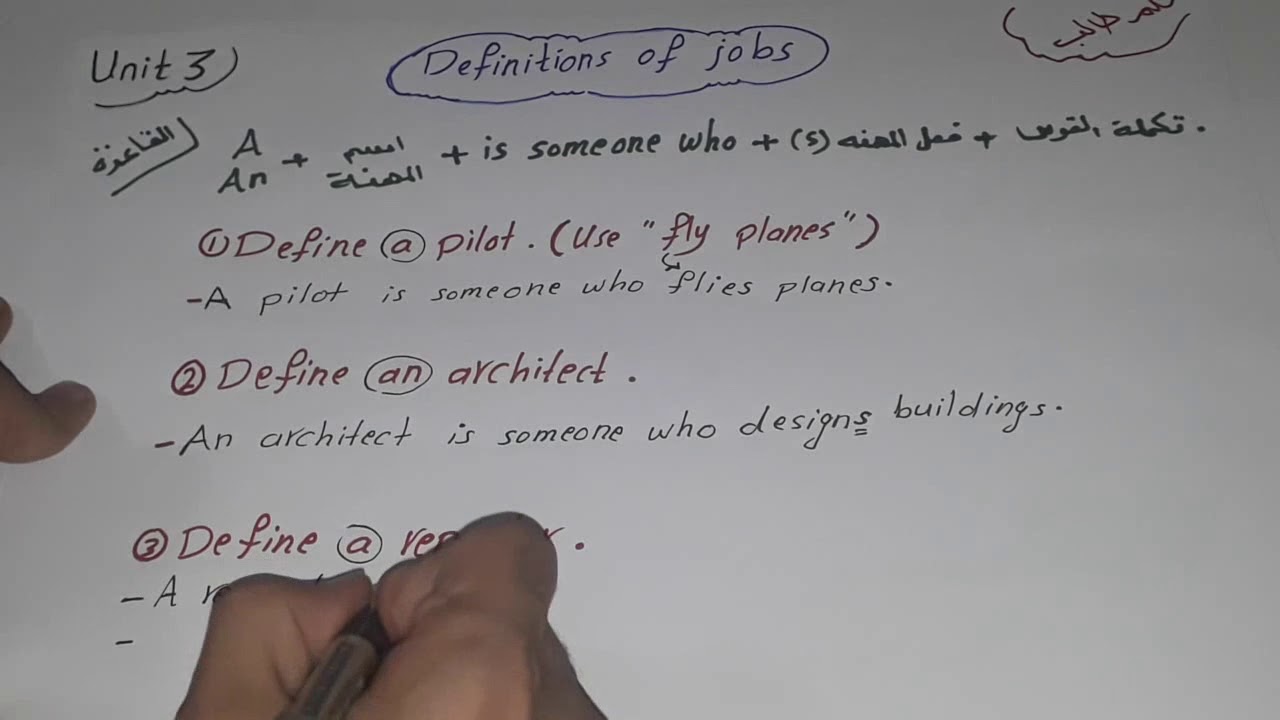 Unit 3
Definitions of jobs
القاعدة
A
An + اسم المهنة + is someone who + (s) فعل المهنه + تكملة القوس .
① Define a pilot. (Use "fly planes")
-A pilot is someone who flies planes.
② Define an architect .
-An architect is someone who designs buildings.
③ Define a .
- A
-